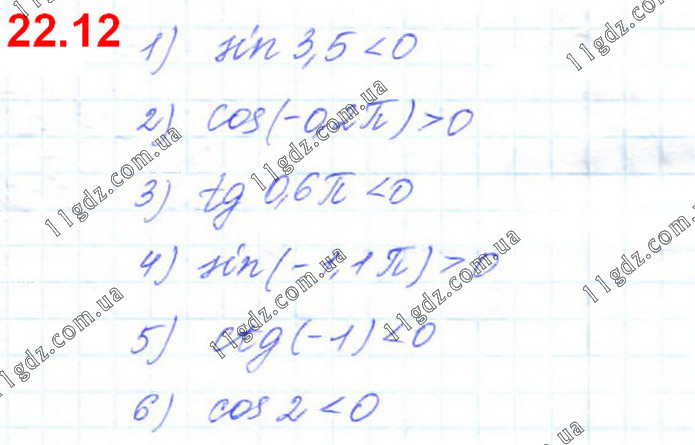 22.12
1) sin 3,5 < 0
2) cos(-0,2π) > 0
3) tg 0,6π < 0
4) sin(-1,1π) > 0
5) ctg(-1) < 0
6) cos 2 < 0
11gdz.com.ua
11gdz.com.ua
11gdz.com.ua
11gdz.com.ua
11gdz.com.ua
11gdz.com.ua
11gdz.com.ua
11gdz.com.ua